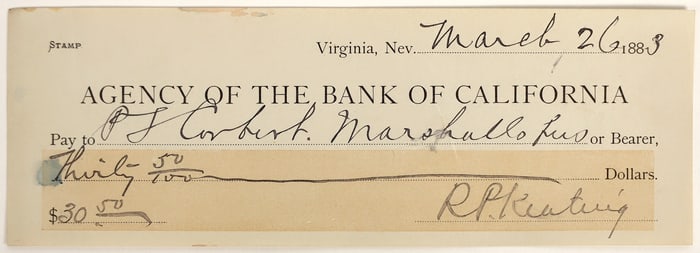 STAMP
Virginia, Nev. March 26 1883
AGENCY OF THE BANK OF CALIFORNIA
Pay to P S Corbert. Marshall or Bearer,
Thirty 50/100 Dollars.
$30 50
R.P. Keating